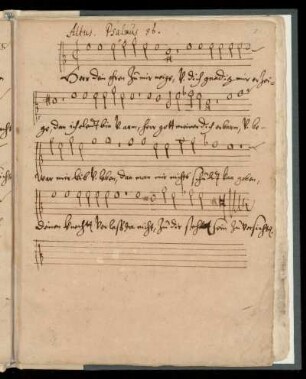 Altus. Psalmus 86.
Herr dein Ohren zu mir neige, v. dich gnedig mir erzei-
ge, den ich elend bin v. arm, Herr gott meiner dich erbarm, v. be-
war mir leib v. leben, das man mir nichts schuld kan geben,
deinen knecht verlass da nicht, zu dir steht sein zuversicht.